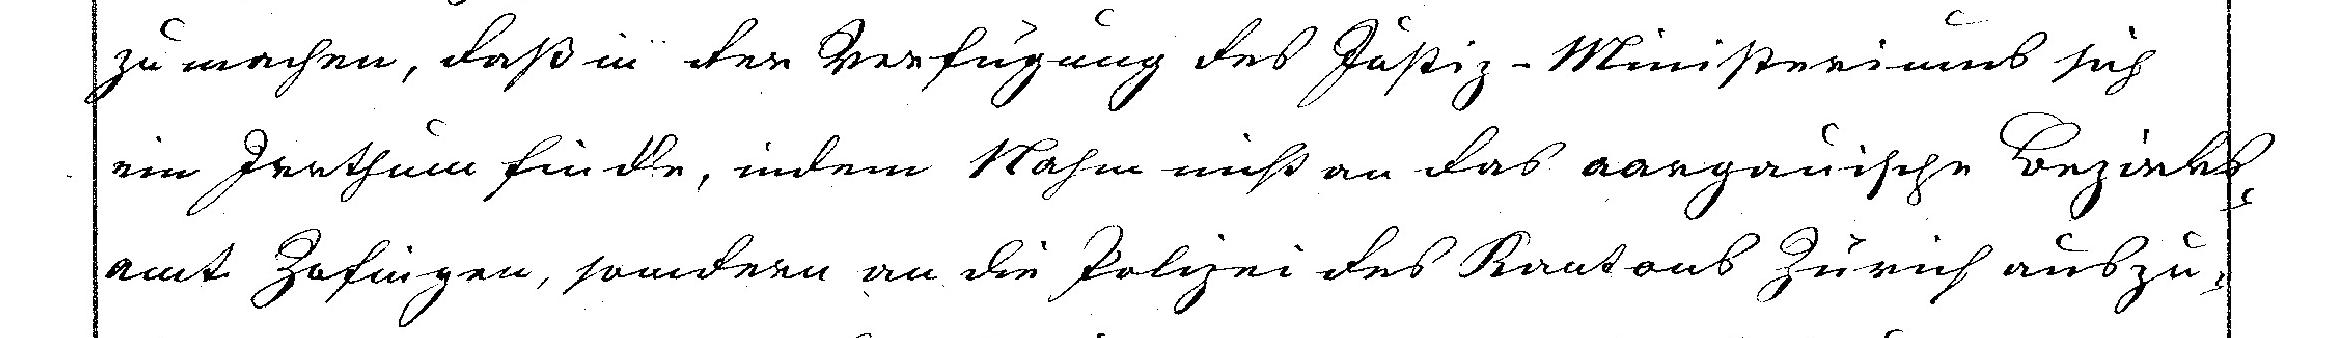 zu machen, daß in der Verfügung des Justiz-Ministeriums sich
ein Irrthum finde, indem Nahm nicht an das aargauische Bezirks¬
amt Zofingen, sondern an die Polizei des Kantons Zürich auszu¬